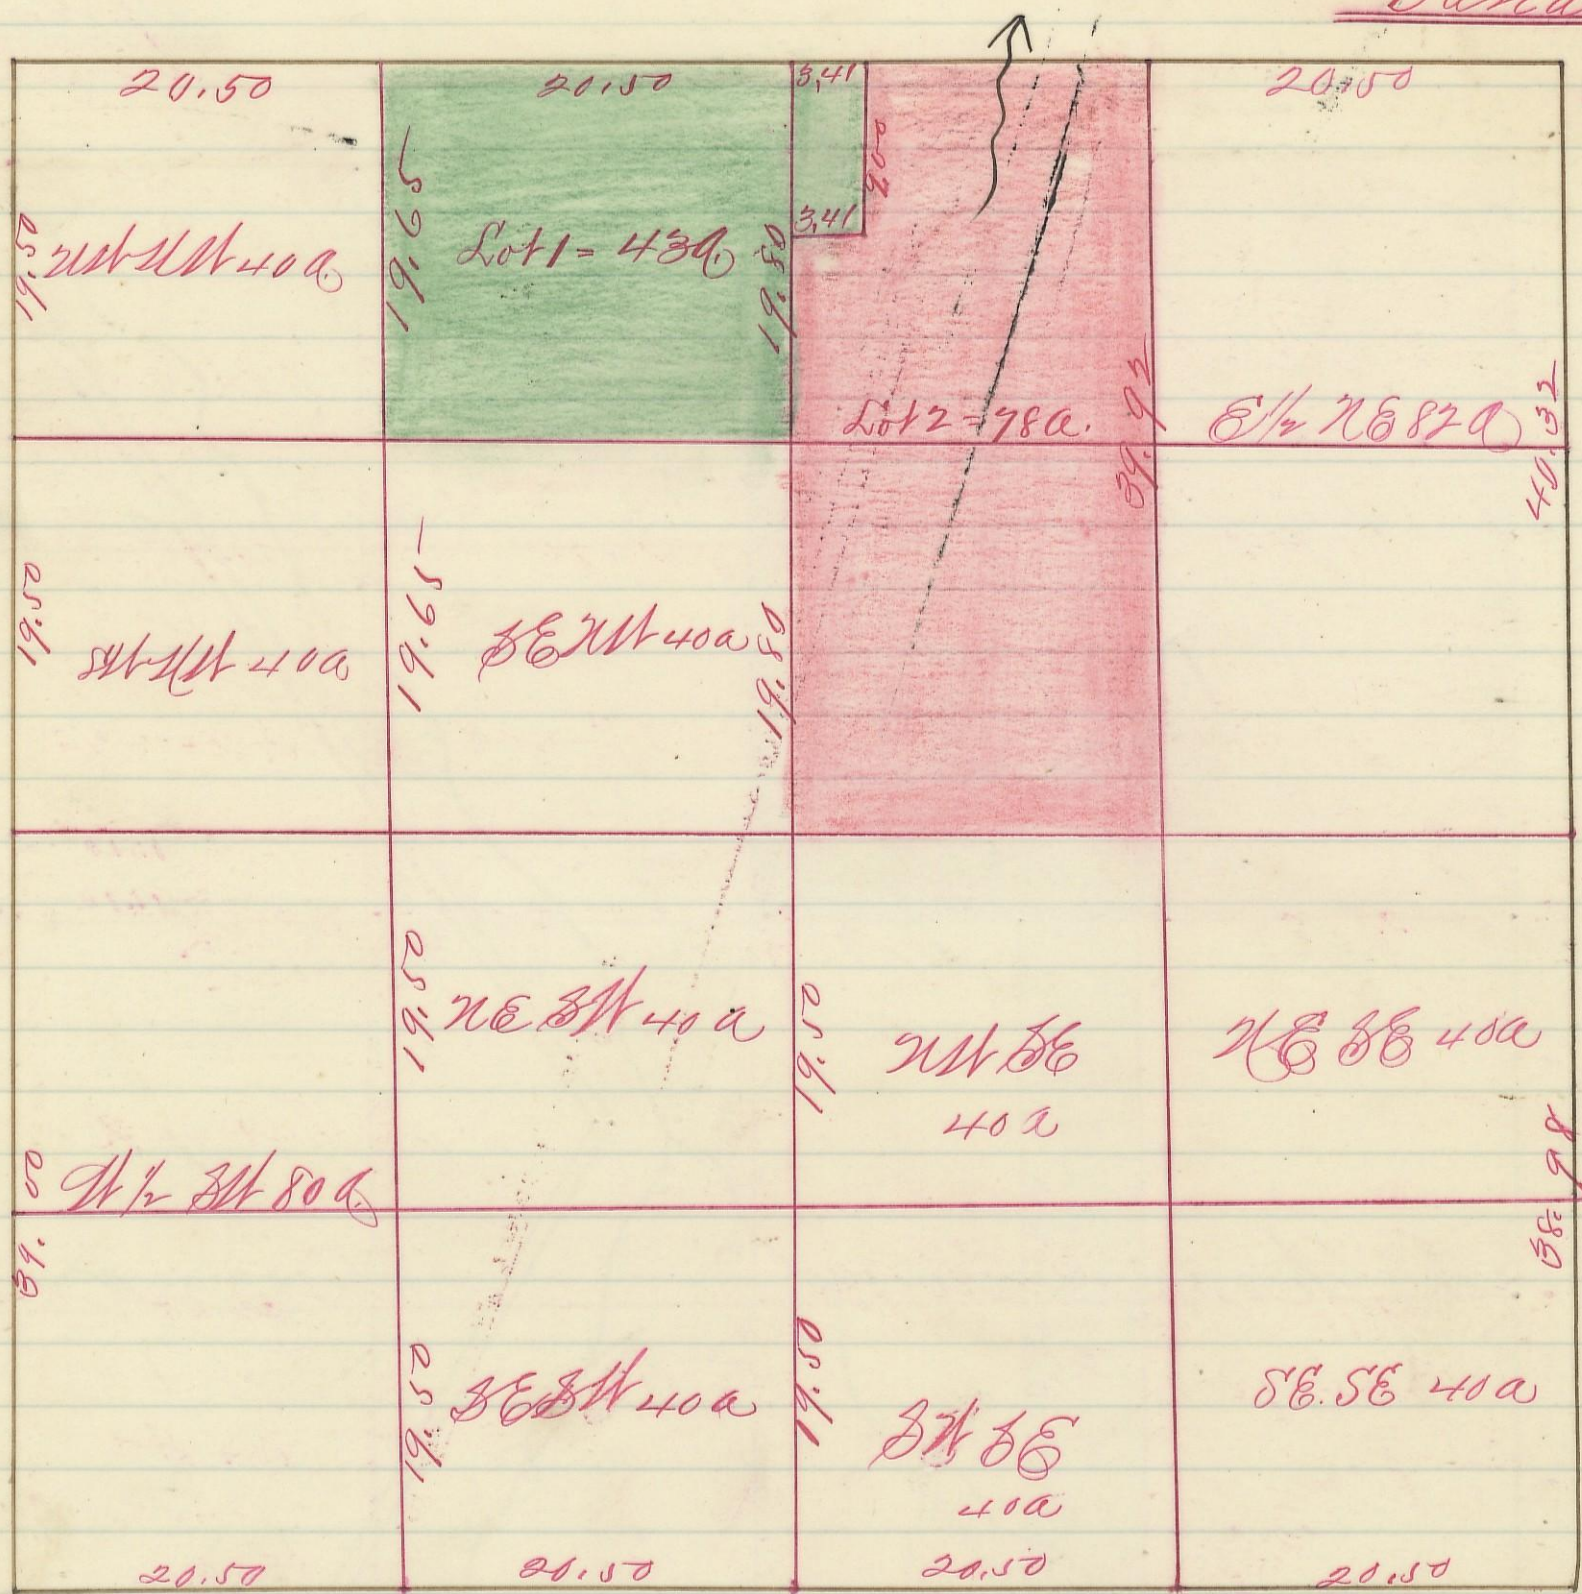 20.50
20.50
3,41
20.50
19.50
NW NW 40 a.
19.65
Lot 1 = 43 a.
19.80
3,41
9.00
Lot 2 = 78 a.
39.92
E 1/2 NE 82 a
40.32
19.50
SW NW 40 a
19.65
SE NW 40 a
19.80
19.50
NE SW 40 a
19.50
NW SE
40 a
NE SE 40 a
39.00
W 1/2 SW 80 a.
38.98
19.50
SE SW 40 a
19.50
SW SE
40 a
SE. SE 40 a
20.50
20.50
20.50
20.50